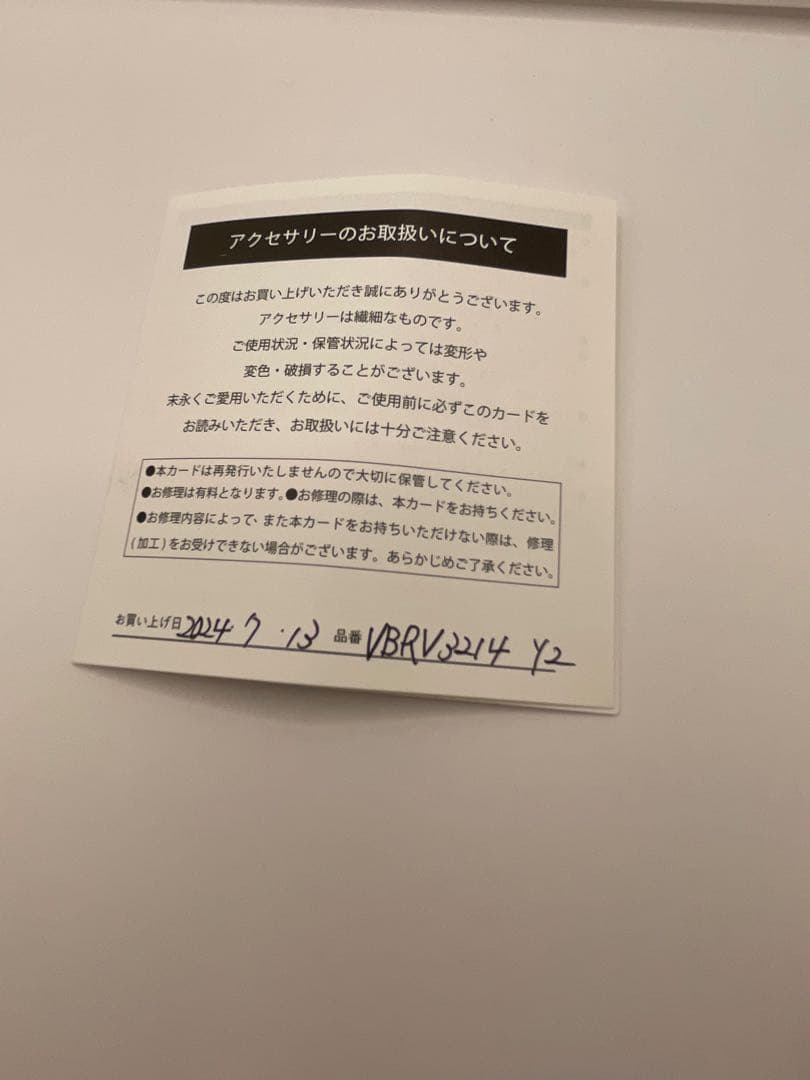 アクセサリーのお取扱いについて
この度はお買い上げいただき誠にありがとうございます。
アクセサリーは繊細なものです。
ご使用状況・保管状況によっては変形や
変色・破損することがございます。
末永くご愛用いただくために、ご使用前に必ずこのカードを
お読みいただき、お取扱いには十分ご注意ください。
●本カードは再発行いたしませんので大切に保管してください。
●お修理は有料となります。●お修理の際は、本カードをお持ちください。
●お修理内容によって、また本カードをお持ちいただけない際は、修理
(加工)をお受けできない場合がございます。あらかじめご了承ください。
お買い上げ日 2024 7 ・13 品番 VBRV3214 Y2